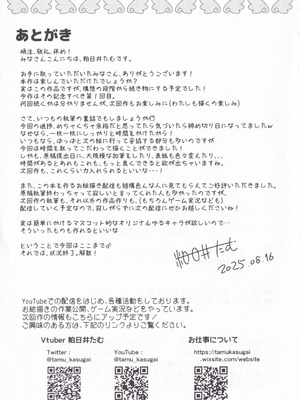 あとがき
頑注、敬礼、休め！
みなさんこんにちは、粕日井たむです。
お手に取っていただいたみなさん、ありがとうございます！
本作は楽しんでいただけたでしょうか？
実はこの作品ですが、構想の段階から続き物にする予定でした！
今作はその記念すべき第１回目。
何回続くやは分かりませんが、次回作もお楽しみに(わたしも描くの楽しみ)
さて、いつもの執筆の裏話でもしましょうか？
今回の進捗、めちゃくちゃ余裕だと思ってたら気づいたら締め切り日になってましたｗ
なぜなら、一枚一枚にしっかりと時間をかけたから！
いつもなら、ぱっぱと次の絵に行って妥協する部分も多いのですが
今回は時間を取ってこだわって描くことができました！
しかも、原稿提出日に、大規模な加筆をしたり、表紙も色々変えたり…
時間があるとあれもこれも、もっと良くできると欲が出ちゃいますね。
次回作も、これくらい力入れるといいな
また、この本を作るお絵描き配信も結構色んな人に見てもらえてご好評いただけてました。
原稿執筆終わっちゃって寂しいと言ってくれた人も多かったのですが、
次回作の執筆も、それ以外の作品作りも、(もちろんゲーム実況なども)
配信していく予定なので、寂しがらずに次の配信にぜひお越しくださいね！
実は簡単に掛けるマスコット的なオリジナルゆるキャラが欲しいので…
そういったものも作れるといいな
ということで今回はここまで♂
それでは、状況終了、解散！
粕日井たむ
2025.08.16
YouTubeでの配信をはじめ、各種活動をしております。
お絵描きの作業公開、ゲーム実況などをやっています。
次回作の情報もこちらにアップ予定です！
ご興味のある方は、下記のリンクよりご覧ください。
Vtuber 粕日井たむ
お仕事について
Twitter：
@tamu_kasugai
YouTube：
@tamu_kasugai
https://tamukasugai
.wixsite.com/website